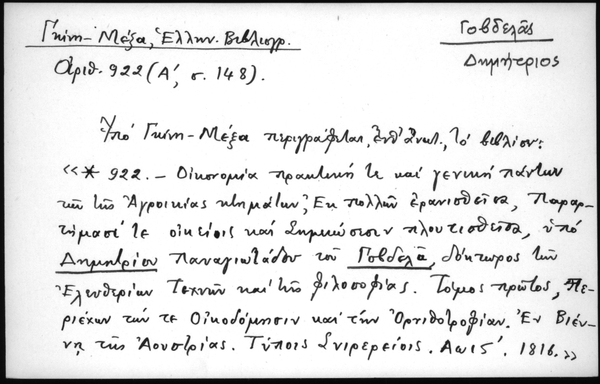 Γκίνη-Μέξα, Ἑλλην. Βιβλιογρ.
Γοβδελᾶς
Ἀριθ. 922 (Α΄, σ. 148).
Δημήτριος
Ὑπὸ Γκίνη-Μέξα περιγράφεται, ἐνθ' ἀνωτ., τὸ βιβλίον:
«* 922. — Οἰκονομία πρακτική τε καὶ γενικὴ πάντων
τῶν τῆς Ἀγροικίας κτημάτων, Ἐκ πολλῶν ἐρανισθεῖσα, Παραρ-
τήμασί τε οἰκείοις καὶ Σημειώσεσιν πλουτισθεῖσα, ὑπὸ
Δημητρίου Παναγιωτάδου τοῦ Γοβδελᾶ, δόκτωρος τῶν
Ἐλευθερίων Τεχνῶν καὶ τῆς φιλοσοφίας. Τόμος πρῶτος, Πε-
ριέχων τήν τε Οἰκοδόμησιν καὶ τὴν Ὀρνιθοτροφίαν. Ἐν Βιέν-
νῃ τῆς Ἀουστρίας. Τύποις Σνιρερείοις. Αωις΄. 1816.»